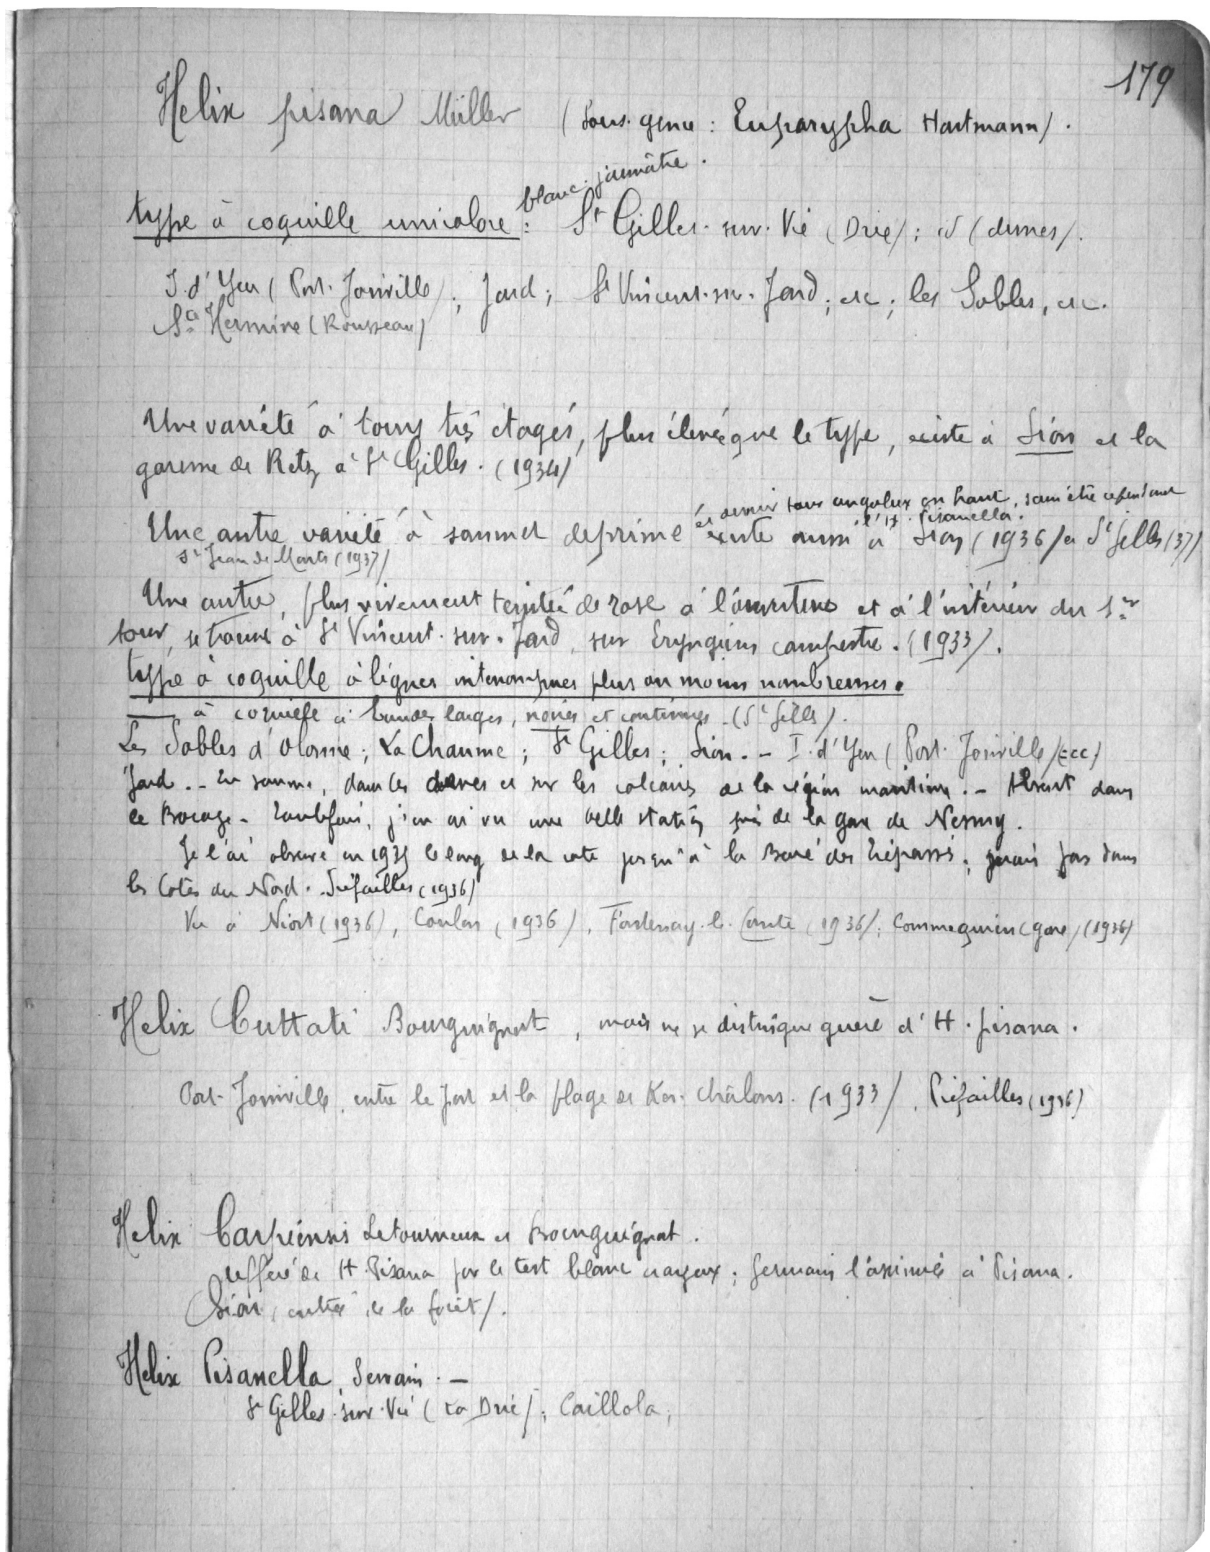 179
Helix pisana Müller (sous-genre : Euparypha Hartmann).
blanc-jaunâtre.
type à coquille unicolore : St Gilles-sur-Vie (Drie) ; (dunes).
I. d'Yeu (Port-Joinville) ; Jard ; St Vincent-sur-Jard ; etc ; les Sables, etc.
Ste Hermine (Rousseau)
Une variété à tours très étagés, plus élevée que le type, existe à Sion et la
garenne de Retz à St Gilles. (1934)
et dernier tour anguleux en haut, sans être cependant
l'H. pisanella.
Une autre variété à sommet déprimé existe aussi à Sion (1936) et St Gilles (37)
St Jean de Monts (1937)
Une autre, plus vivement teintée de rose à l'ouverture et à l'intérieur du 1er
tour, se trouve à St Vincent-sur-Jard, sur Eryngium campestre. (1933).
type à coquille à lignes interrompues plus ou moins nombreuses.
—— à coquille à bandes larges, noires et continues. (St Gilles).
Les Sables d'Olonne ; La Chaume ; St Gilles ; Sion. - I. d'Yeu (Port-Joinville)
Jard. - En somme, dans les dunes et sur les calcaires de la région maritime. - Absent dans
le Bocage - Toutefois, j'en ai vu une belle station près de la gare de Nesmy.
Je l'ai observé en 1935 le long de la côte jusqu'à la Baie des Trépassés ; jamais pas dans
les Côtes du Nord. Préfailles (1936)
Vu à Niort (1936), Coulon (1936), Fontenay-le-Comte (1936) ; Commequiers (gare) (1936)
Helix Cuttati Bourguignat, mais ne se distingue guère d'H. pisana.
Port-Joinville, entre le port et la plage de Ker-Châlons. (1933), Préfailles (1936)
Helix Carpiensis Letourneux et Bourguignat.
diffère de H. Pisana par le test blanc crayeux ; Germain l'assimile à Pisana.
(Sion, entrée de la forêt).
Helix Pisanella Servain. -
St Gilles-sur-Vie (La Drie) ; Caillola ;